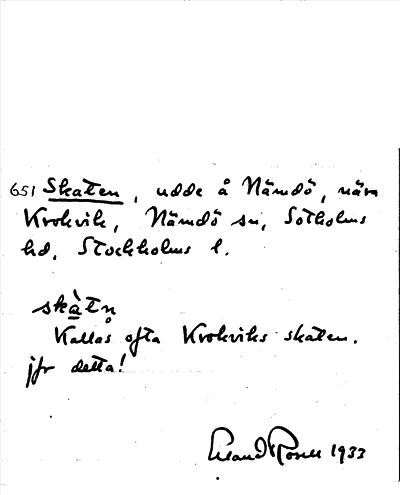 651 Skaten, udde å Nämdö, nära
Krokvik, Nämdö sn, Sotholms
hd, Stockholms l.
skàtn̥
Kallas ofta Krokviks skaten.
jfr detta!
Erland Rosell 1933